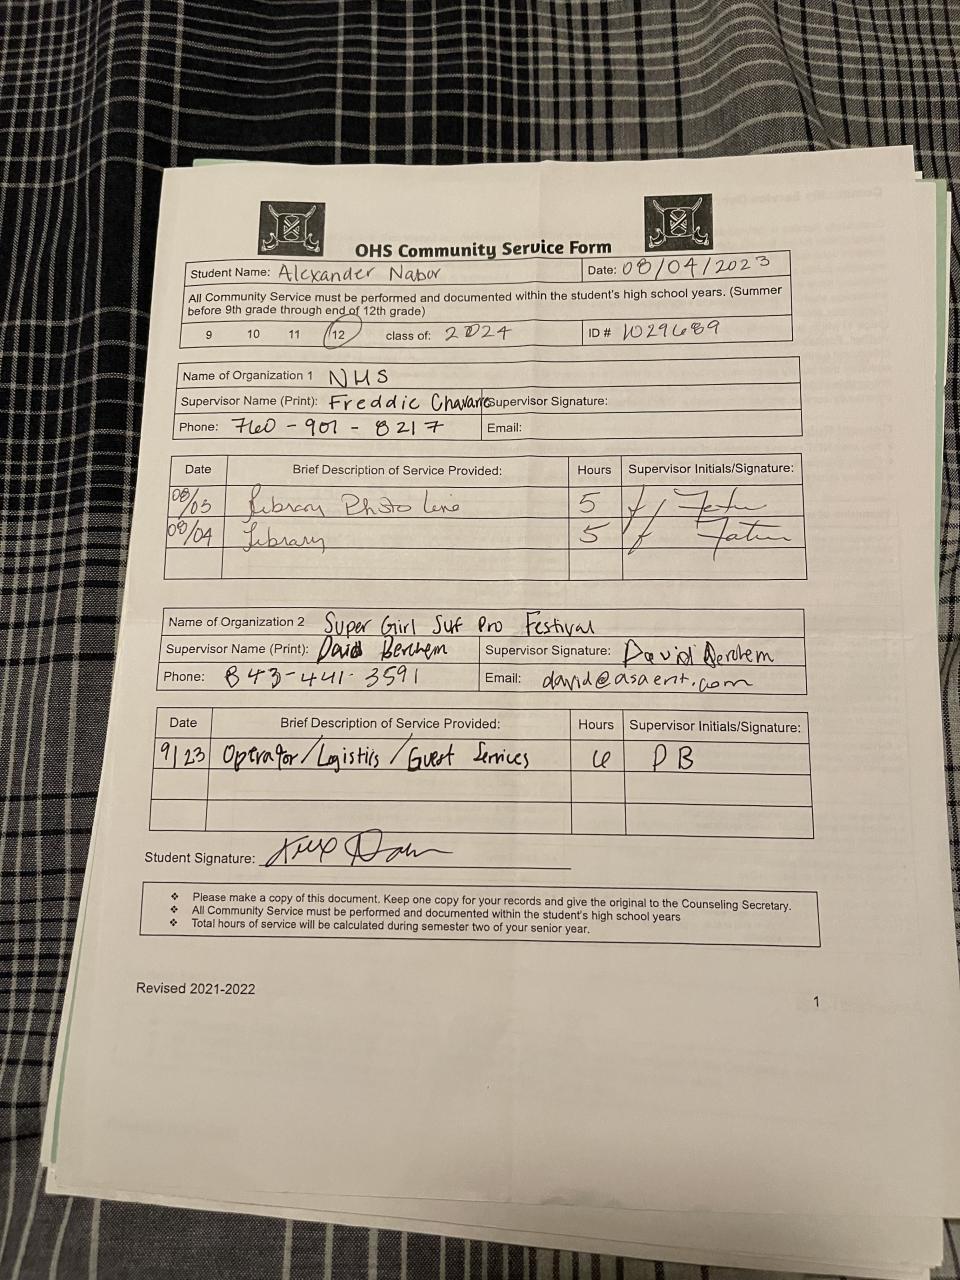 OHS Community Service Form
Student Name: Alexander Nabor Date: 08/04/2023
All Community Service must be performed and documented within the student's high school years. (Summer
before 9th grade through end of 12th grade)
9 10 11 12 class of: 2024 ID # 1029689
Name of Organization 1 NHS
Supervisor Name (Print): Freddie Supervisor Signature:
Phone: 760-901-8217 Email:
Date Brief Description of Service Provided: Hours Supervisor Initials/Signature:
08/03 Library Photo Line 5
08/04 Library 5
Name of Organization 2 Super Girl Surf Pro Festival
Supervisor Name (Print): David Berchem Supervisor Signature: David Berchem
Phone: 843-441-3591 Email: david@asaent.com
Date Brief Description of Service Provided: Hours Supervisor Initials/Signature:
9/23 Operator/Logistics/Guest Services DB
Student Signature:
❖ Please make a copy of this document. Keep one copy for your records and give the original to the Counseling Secretary.
❖ All Community Service must be performed and documented within the student's high school years
❖ Total hours of service will be calculated during semester two of your senior year.
Revised 2021-2022
1